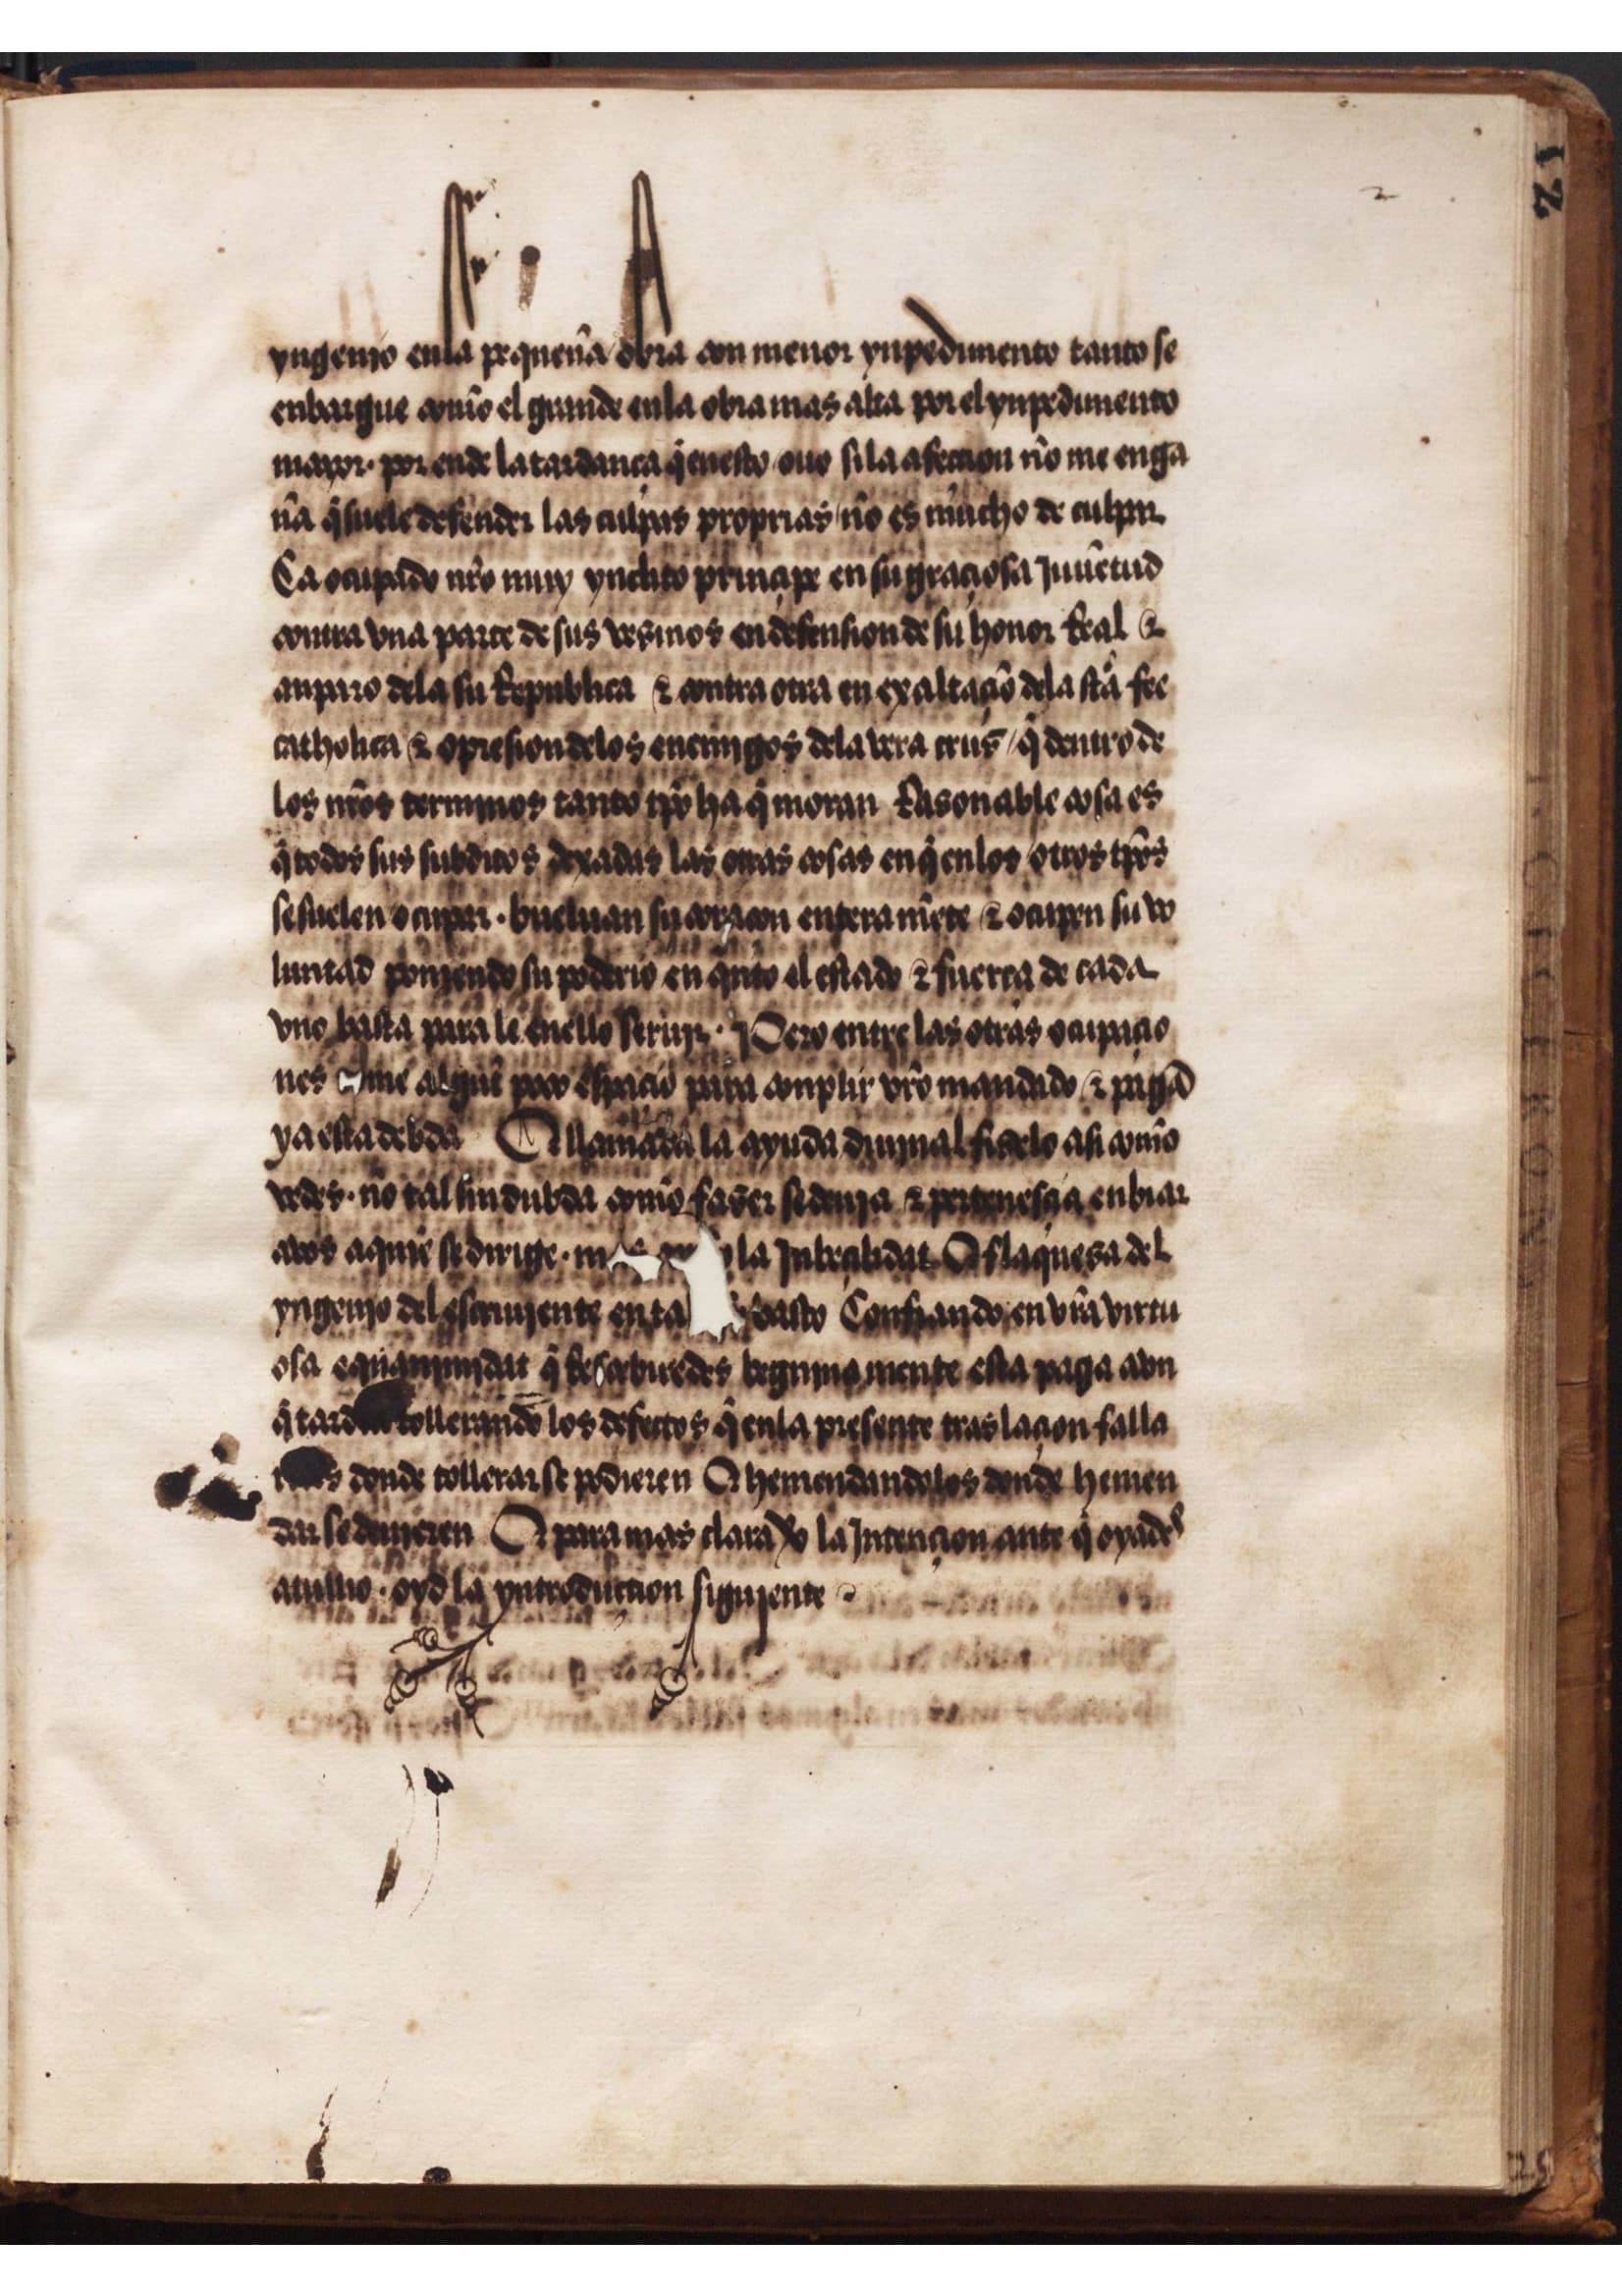 2
12
yngenio enla pequen̄a obra con menor ynpedimento tanto se
enbargue com̄o el grande enla obra mas alta por el ynpedimento
mayor· por ende la tardança q̃ enesto ouo si la afeccion n̄o me enga
n̄a q̃ suele defender las culpas proprias / n̄o es mucho de culpar
Ca ocupado nr̄o muy ynclito prinçipe en su graçiosa Juuētud
contra vna parte de sus vesinos en defension de su honor Real &
anparo dela su Republica & contra otra en exaltaçiō dela stā fee
catholica & opresion delos enemigos dela vera crus / q̃ dentro de
los nr̄os terminos tanto tp̄o ha q̃ moran Rasonable cosa es
q̃ todos sus subditos dexadas las otras cosas en q̃ enlos otros tp̄os
se suelen ocupar · bueluan su coraçon enteramēte & ocupen su vo
luntad poniendo su poderio en qn̄to el estado & fuerça de cada
vno basta para le enello seruir · Pero entre las otras ocupaçio
nes me algun̄ poco espaçio para conplir vr̄o mandado & pagā
ya esta debda E llamada la ayuda diuinal fiselo asi com̄o
vedes· n̄o tal sin dubda com̄o faser se deuia & pertenesçia enbiar
avos aquiē se dirige · la Inbeçilidat O flaquesa del
yngenio del escriuiente basto Confiando en vr̄a virtu
osa equanimidat q̃ Resçebiredes begninamente esta paga avn
q̃ tollerando los defectos q̃ enla presente traslaçion falla
donde tollerar se podieren O hemendandolos donde hemen
dar se deuieren E para mas clara la Intençion ante q̃ oyades
atullio · oyd la yntroduction siguiente